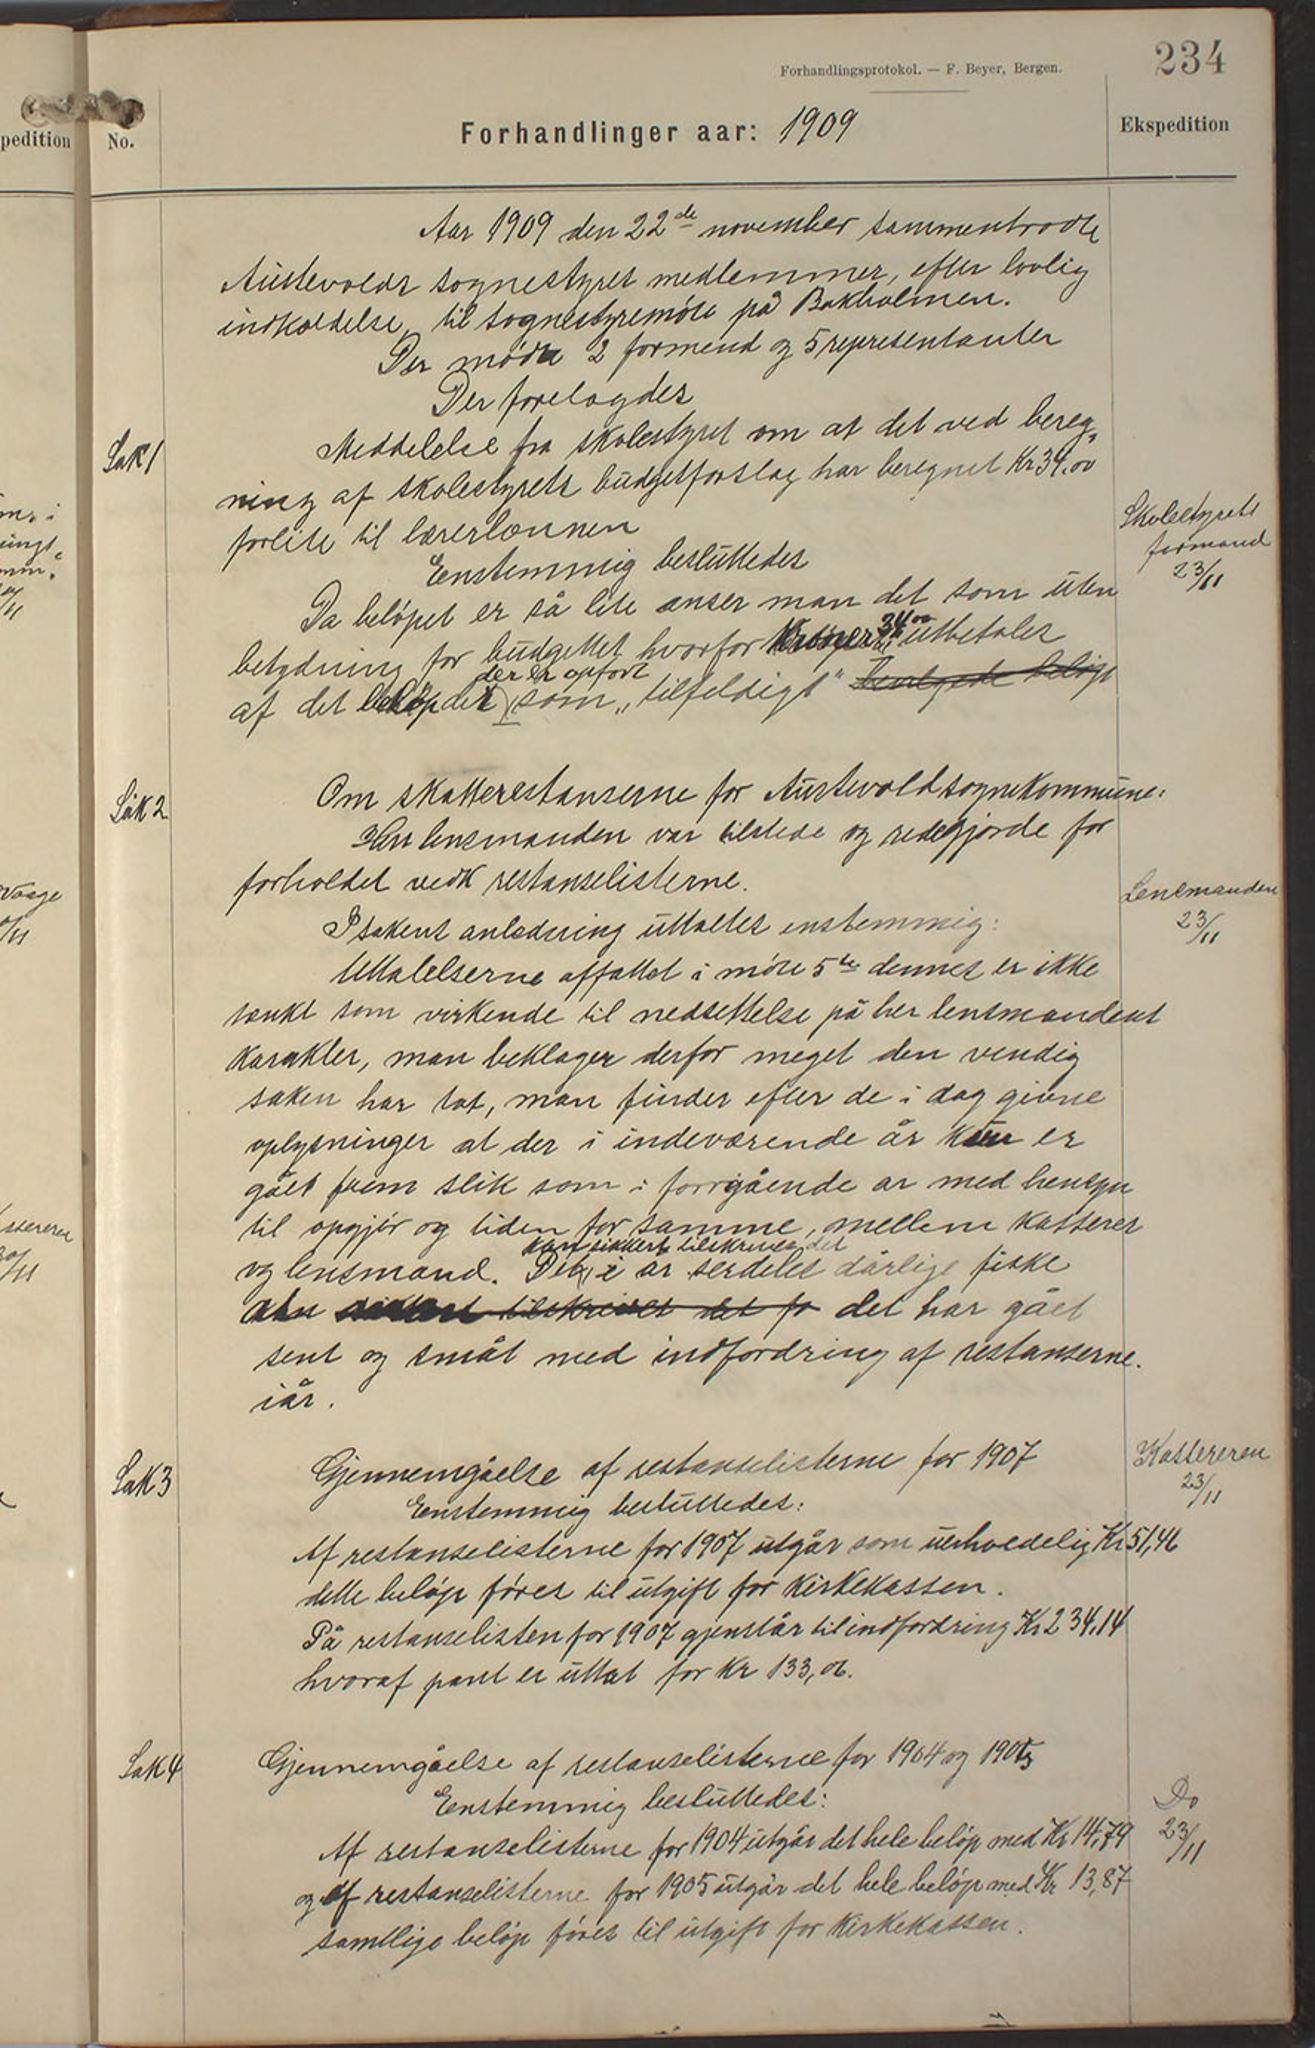 234
Forhandlingsprotokol. — F. Beyer, Bergen.
pedition
No.
Forhandlinger aar: 1909
Ekspedition
Aar 1909 den 22de november sammentraadte
Austevolds sognestyres medlemmer, efter lovlig
indkaldelse, til sognestyremöte på Bakholmen.
Der mödte 2 formend og 5 representanter
Der forelagdes
Sak 1
Meddelelse fra skolestyret om at det ved bereg-
ning af skolestyrets budgetforslag har beregnet Kr 34,00
forlite til lærerlønnen
Skolestyrets
formand
23/11
Enstemmig besluttedes
Da belöpet er så lite anser man det som uten
betydning for budgettet hvorfor Kroner 34 00 utbetales
af det belöp der er opfört som "tilfeldigt" bevilgede beløp
Sak 2
Om skatterestanserne for Austevold sognekommune:
Herr lensmanden var tilstede og redegjorde for
forholdet vedk restanselisterne.
Lensmanden
23/11
I sakens anledning uttaltes enstemmig:
Uttalelserne affattet i möte 5te dennes er ikke
tænkt som virkende til nedsettelse på her lensmandens
karakter, man beklager derfor meget den vendig
saken har tat, man finder efter de i dag givne
oplysninger at der i indeværende år kun er
gået frem slik som i forrigående ar med hensyn
til opgjör og tiden for samme, mellem kasserer
og lensmand. Det kan sikkert tilskrives det i ar serdeles dårlige fiske
at det har gået
sent og småt med indfordring af restanserne
iår.
Sak 3
Gjennemgåelse af restanselisterne for 1907
Kassereren
23/11
Enstemmig besluttedes:
Af restanselisterne for 1907 utgår som uerholdelig Kr 51,46
dette belöp föres til utgift for Kirkekassen.
På restanselisten for 1907 gjenstår til indfordring Kr 234,14
hvoraf pant er uttat for Kr 133,06.
Sak 4
Gjennemgåelse af restanselisterne for 1904 og 1905
Enstemmig besluttedes:
Do
23/11
Af restanselisterne for 1904 utgår det hele belöp med Kr 14,79
og af restanselisterne for 1905 utgår det hele belöp med Kr 13,87
samtlige belöp föres til utgift for Kirkekassen.